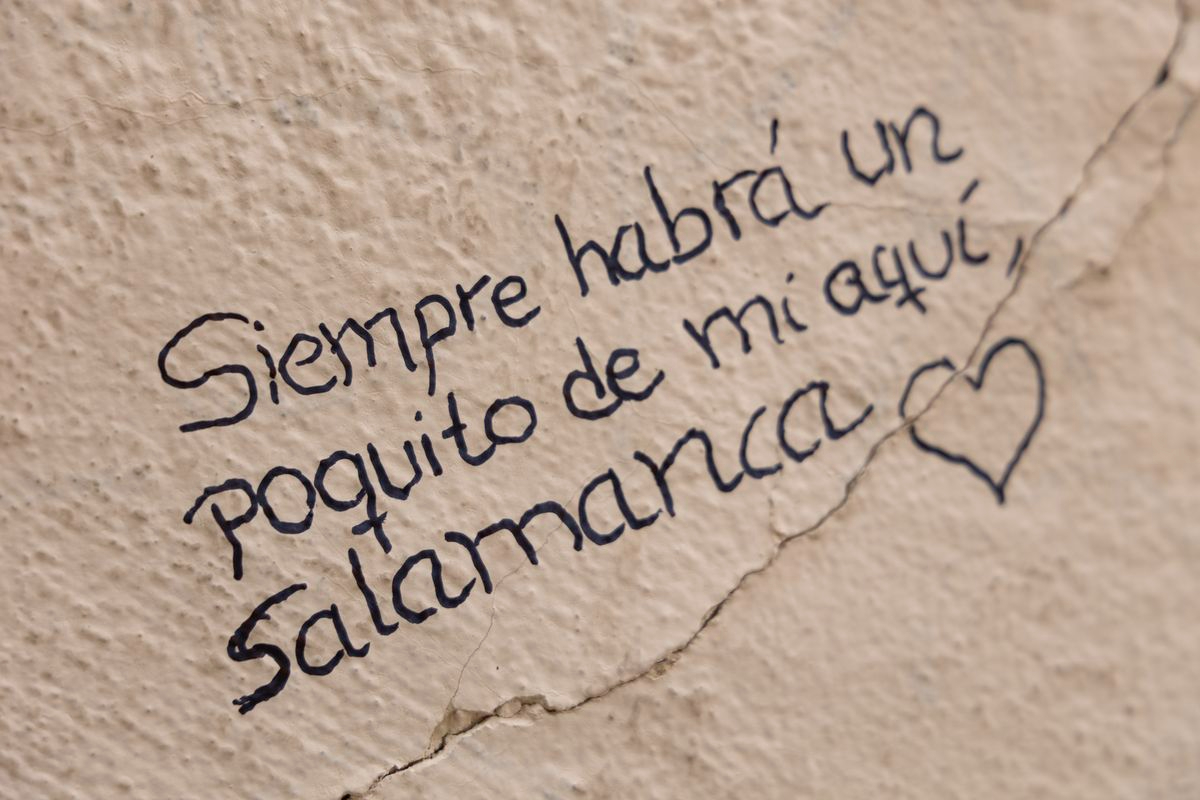 Siempre habrá un
poquito de mi aquí,
Salamanca ♡